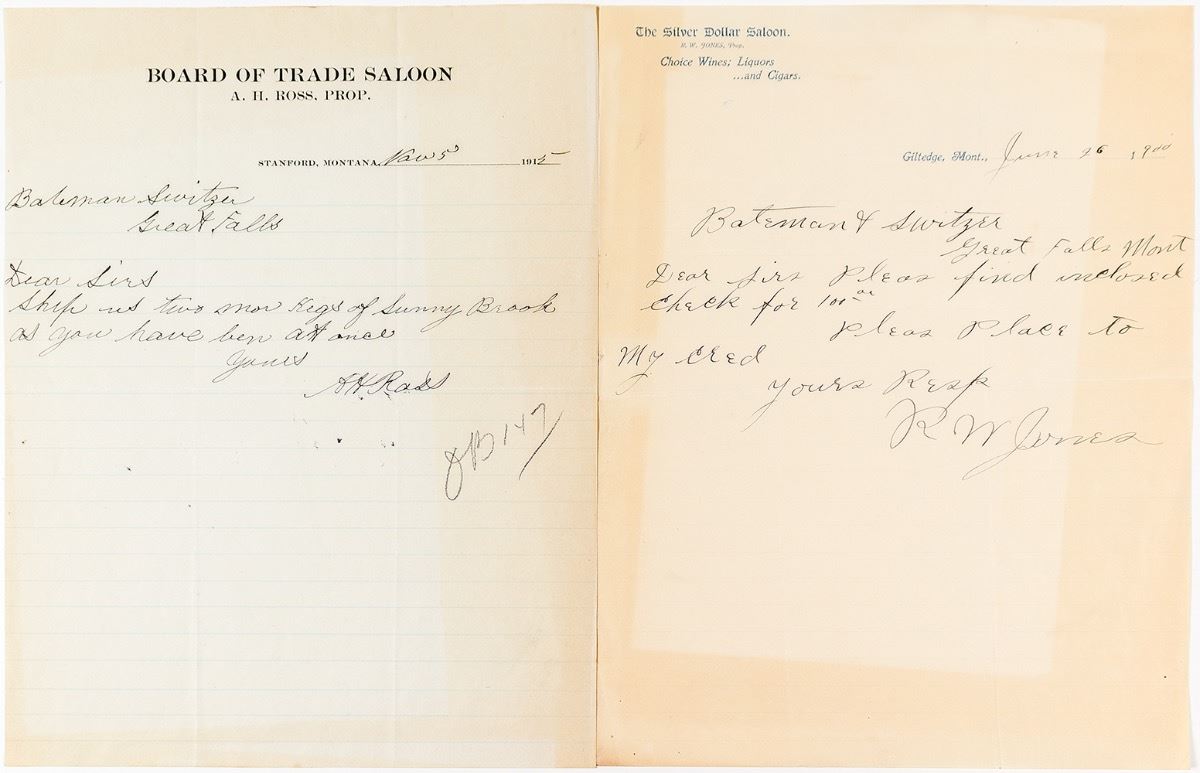 BOARD OF TRADE SALOON
A. H. ROSS, PROP.
STANFORD, MONTANA, Nov 5 1915
Bateman Switzer
Great Falls
Dear Sirs
Ship us two mor Kegs of Sunny Brook
as you have ben at once
Yours
A H Ross
147
The Silver Dollar Saloon.
R. W. JONES, Prop.
Choice Wines; Liquors
...and Cigars.
Giltedge, Mont., June 26 1900
Bateman & Switzer
Great Falls Mont
Dear Sirs Pleas find inclosed
check for 100 00
Pleas Place to
My cred
Yours Resp
R W Jones